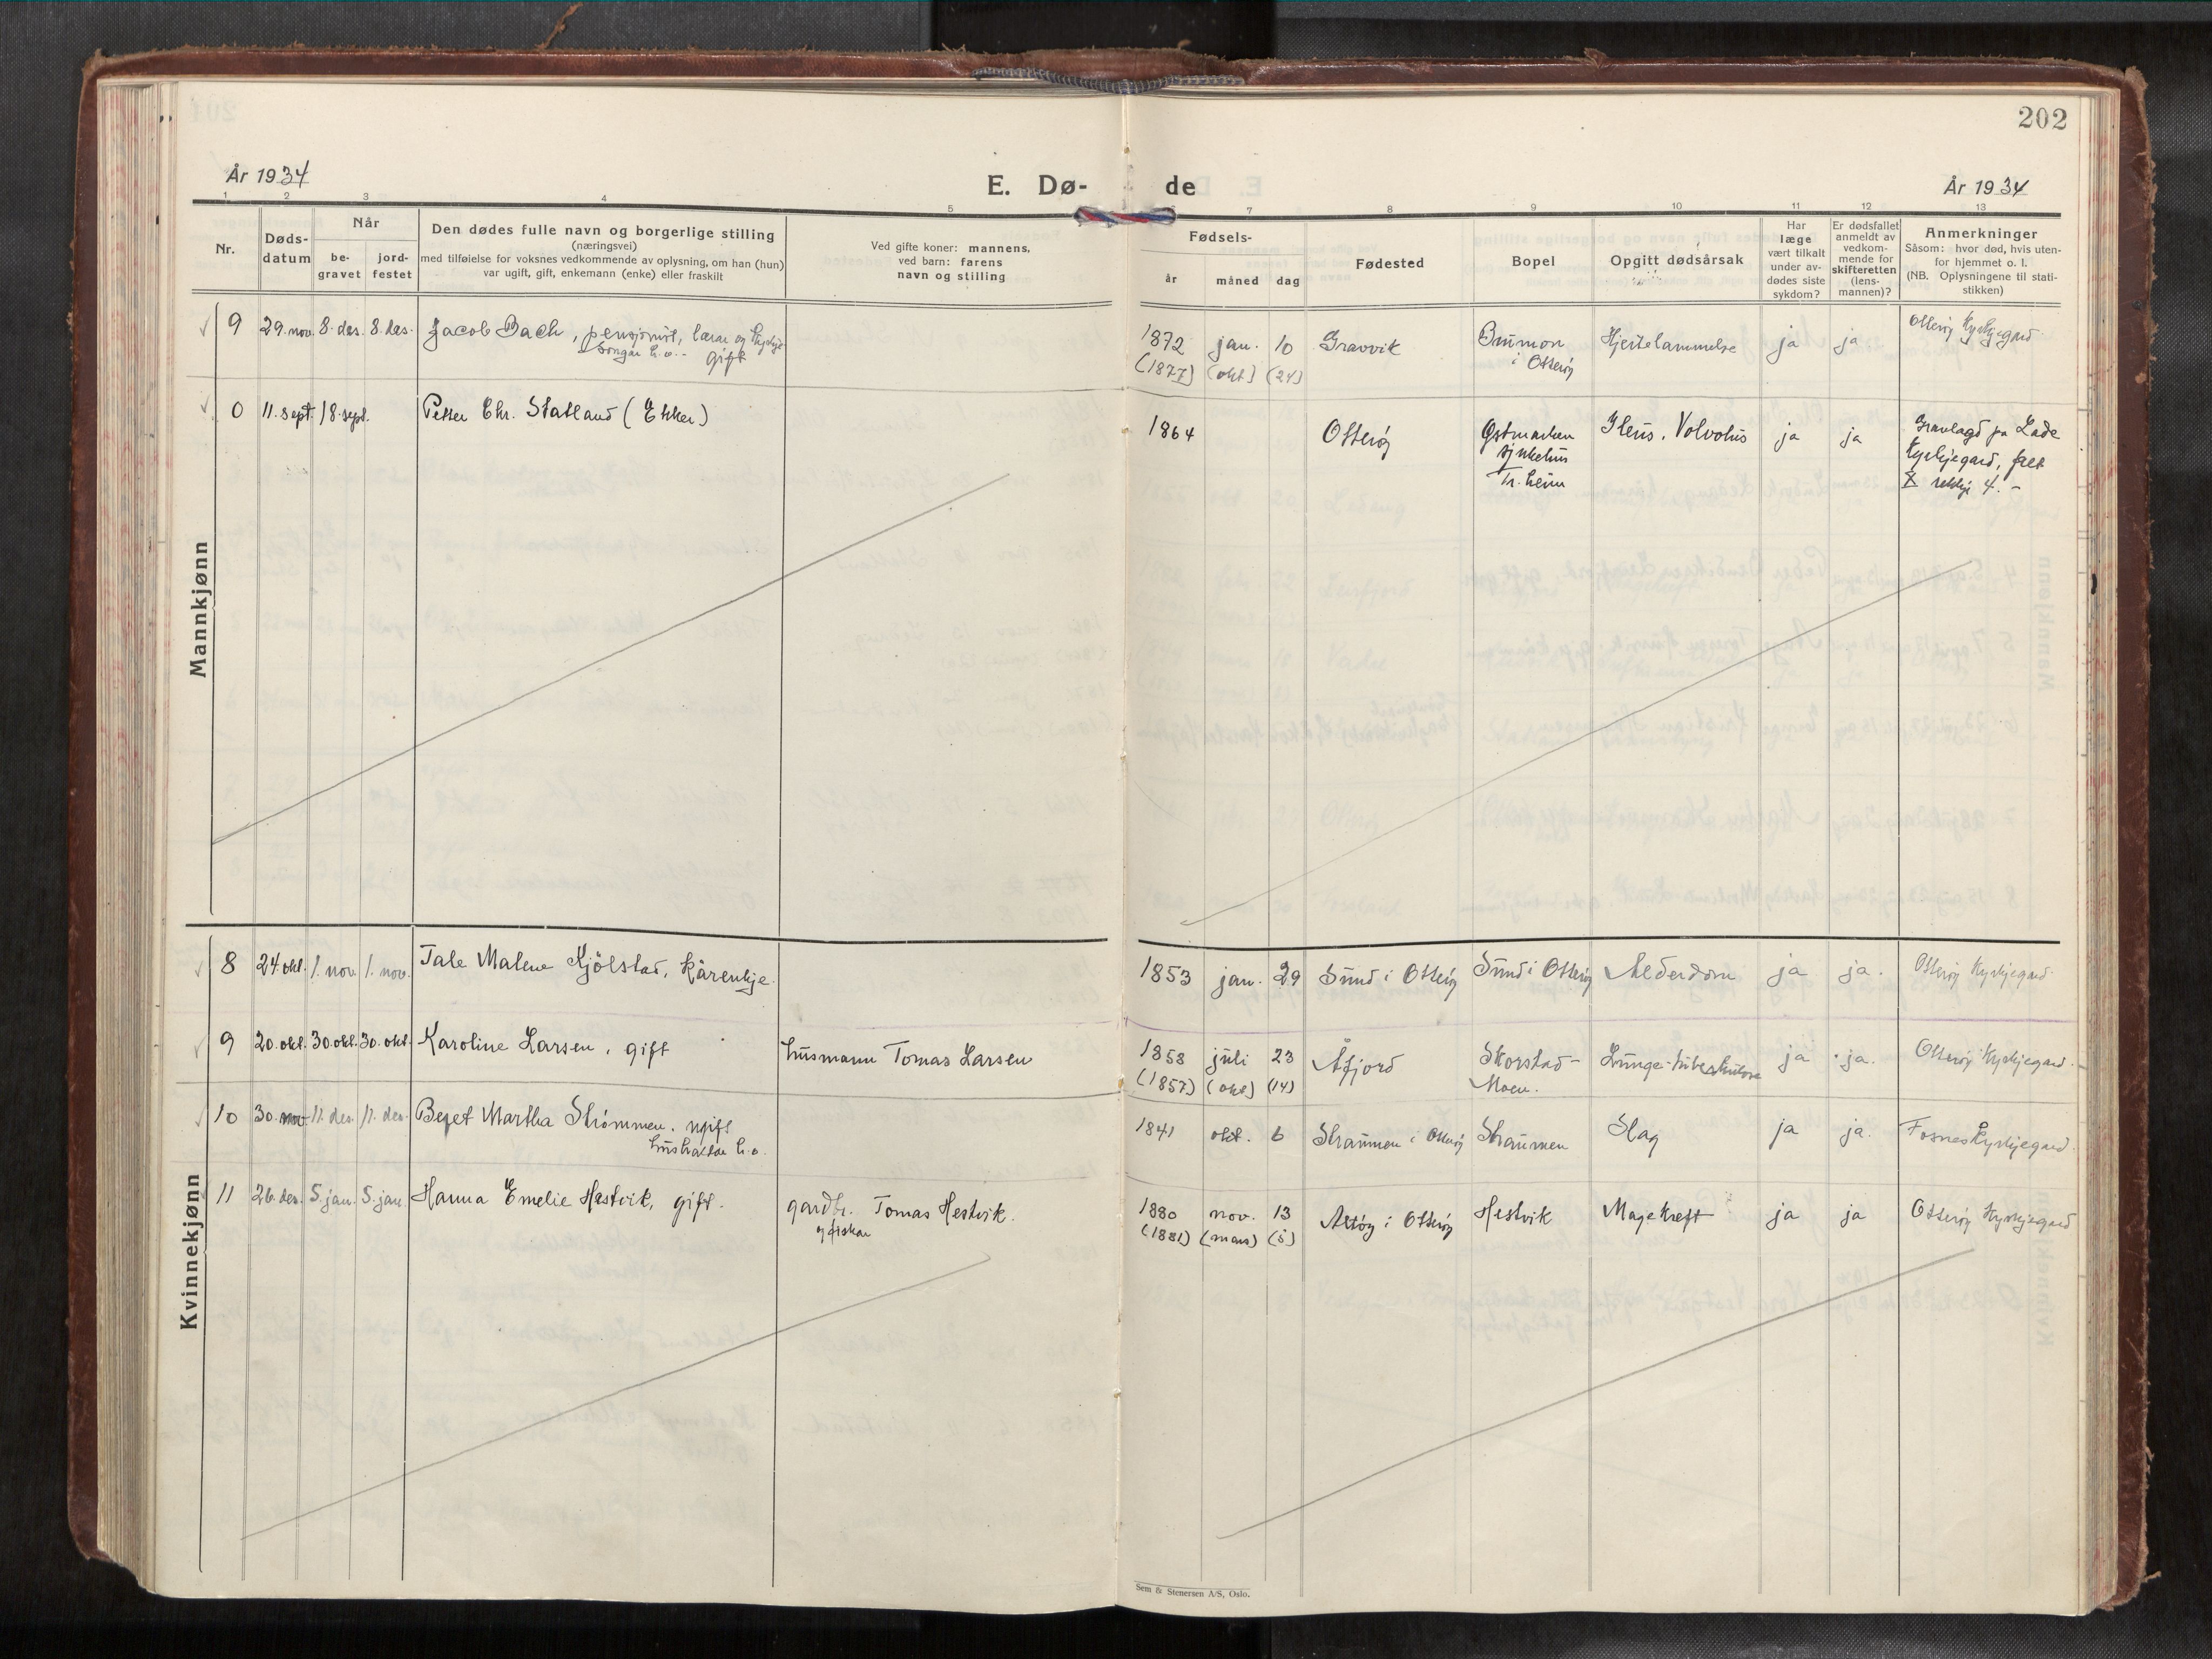 202
År 1934
E. Dø- de
År 1934
1 2 3 4 5 7 8 9 10 11 12 13
Nr.
Døds-
datum
Når
be-
gravet
jord-
festet
Den dødes fulle navn og borgerlige stilling
(næringsvei)
med tilføielse for voksnes vedkommende av oplysning, om han (hun)
var ugift, gift, enkemann (enke) eller fraskilt
Ved gifte koner: mannens,
ved barn: farens
navn og stilling
Fødsels-
år måned dag
Fødested
Bopel
Opgitt dødsårsak
Har
læge
vært tilkalt
under av-
dødes siste
sykdom?
Er dødsfallet
anmeldt av
vedkom-
mende for
skifteretten
(lens-
mannen)?
Anmerkninger
Såsom: hvor død, hvis uten-
for hjemmet o. l.
(NB. Oplysningene til stati-
stikken)
Mannkjønn
9 29. nov. 8. des. 8. des. Jacob Bach, pensjonist, lærar og kyrkje-
songar h.v. - gift
1872 jan. 10 Gravvik
(1877) (okt) (24)
Brumon
i Otterøy
Hjertelammelse ja ja
Otterøy Kyrkjegard
0 11. sept. 18. sept. Petter Chr. Statland (Ekker)
1864 Otterøy
Østmarken
sjukehus
Tr.heim
Ileus. Volvolus ja ja
Gravlagd på Lade
Kyrkjegard, felt
X rekkje 4. -
Kvinnekjønn
8 24. okt. 1. nov. 1. nov. Tale Malene Kjölstad, kårenkje.
1853 jan. 29 Sund i Otterøy Sund i Otterøy Alderdom ja ja. Otterøy Kyrkjegard
9 20. okt. 30. okt. 30. okt. Karoline Larsen, gift husmann Tomas Larsen
1858 juli 23 Åfjord
(1857) (okt) (14)
Skorstad-
Moen.
Lunge-tuberkulose ja ja. Otterøy Kyrkjegard.
10 30. nov. 11. des. 11. des. Beret Martha Strømmen. ugift
hushalda h.v.
1841 okt. 6 Straumen i Otterøy Straumen Slag ja ja. Fosnes Kyrkjegard.
11 26. des. 5. jan. 5. jan. Hanna Emelie Hestvik, gift. gardbr. Tomas Hestvik.
og fiskar
1880 nov. 13 i Otterøy Hestvik Magekreft ja ja Otterøy Kyrkjegard
(1881) (mars) (5)
Sem & Stenersen A/S, Oslo.